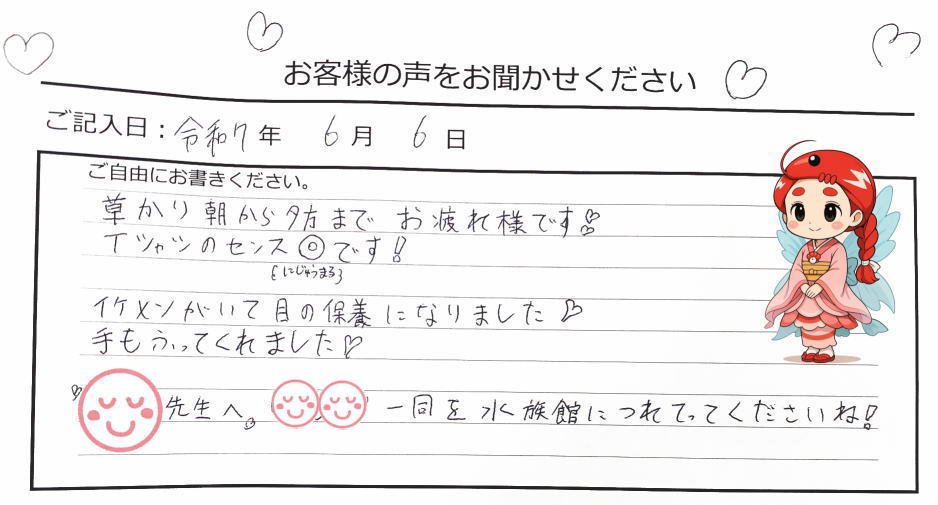 お客様の声をお聞かせください
ご記入日：令和7年 6月 6日
ご自由にお書きください。
草かり朝から夕方まで お疲れ様です!!
Tシャツのセンス◎です!
{にじゅうまる}
イケメンがいて目の保養になりました♡
手もふってくれました♡
先生へ 一同を水族館につれてってくださいね!